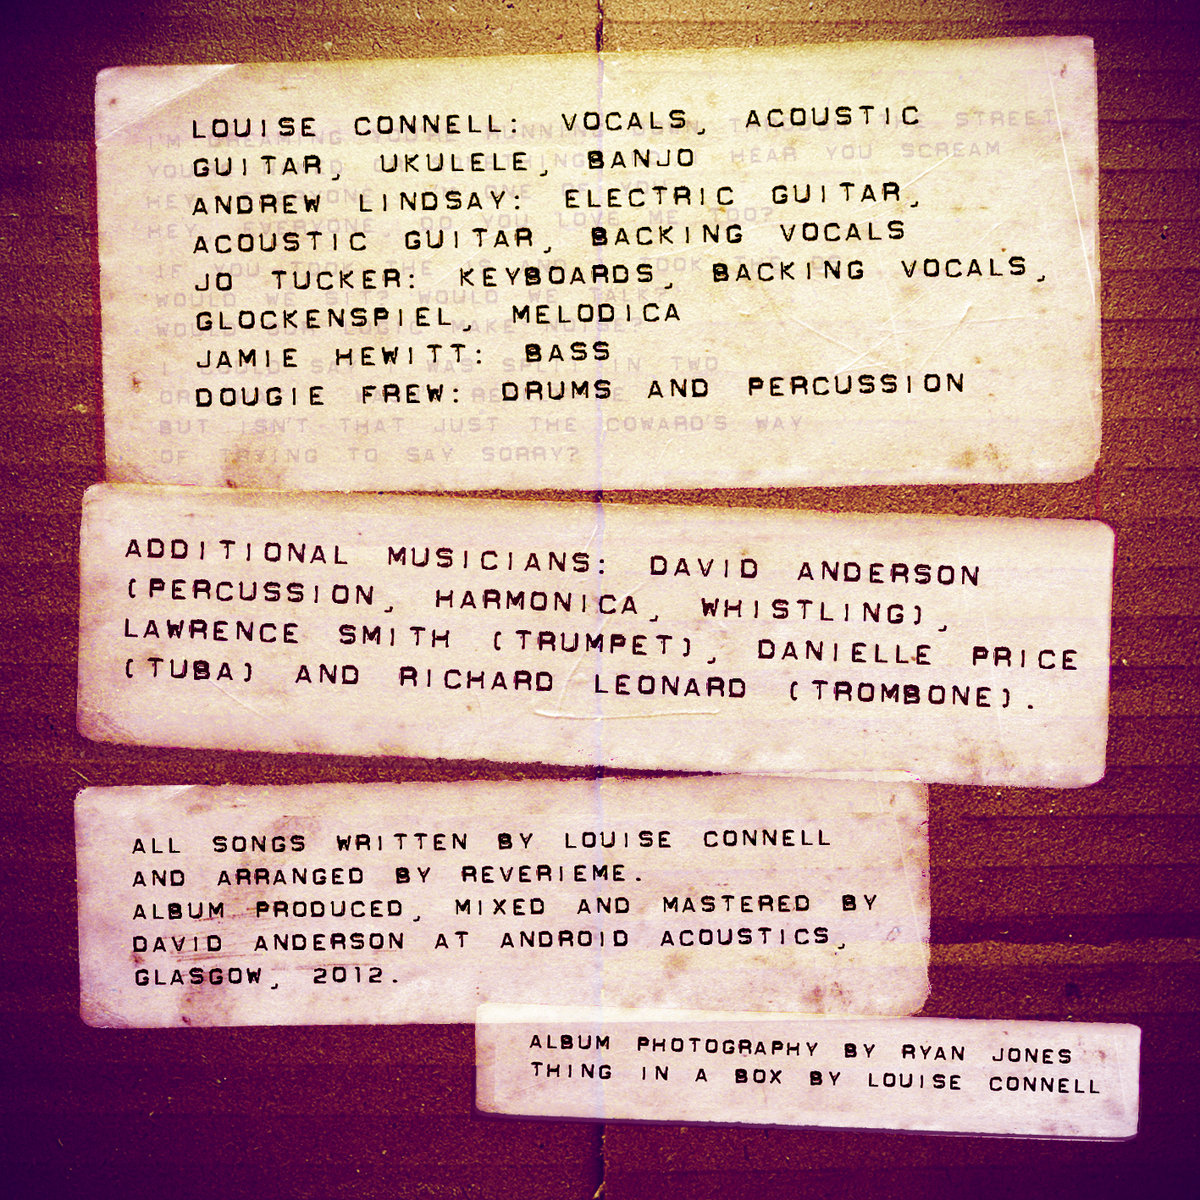 LOUISE CONNELL: VOCALS, ACOUSTIC
GUITAR, UKULELE, BANJO
ANDREW LINDSAY: ELECTRIC GUITAR,
ACOUSTIC GUITAR, BACKING VOCALS
JO TUCKER: KEYBOARDS, BACKING VOCALS,
GLOCKENSPIEL, MELODICA
JAMIE HEWITT: BASS
DOUGIE FREW: DRUMS AND PERCUSSION
BUT ISN'T THAT JUST THE COWARD'S WAY
OF TRYING TO SAY SORRY?
ADDITIONAL MUSICIANS: DAVID ANDERSON
(PERCUSSION, HARMONICA, WHISTLING),
LAWRENCE SMITH (TRUMPET), DANIELLE PRICE
(TUBA) AND RICHARD LEONARD (TROMBONE).
ALL SONGS WRITTEN BY LOUISE CONNELL
AND ARRANGED BY REVERIEME.
ALBUM PRODUCED, MIXED AND MASTERED BY
DAVID ANDERSON AT ANDROID ACOUSTICS,
GLASGOW, 2012.
ALBUM PHOTOGRAPHY BY RYAN JONES
THING IN A BOX BY LOUISE CONNELL